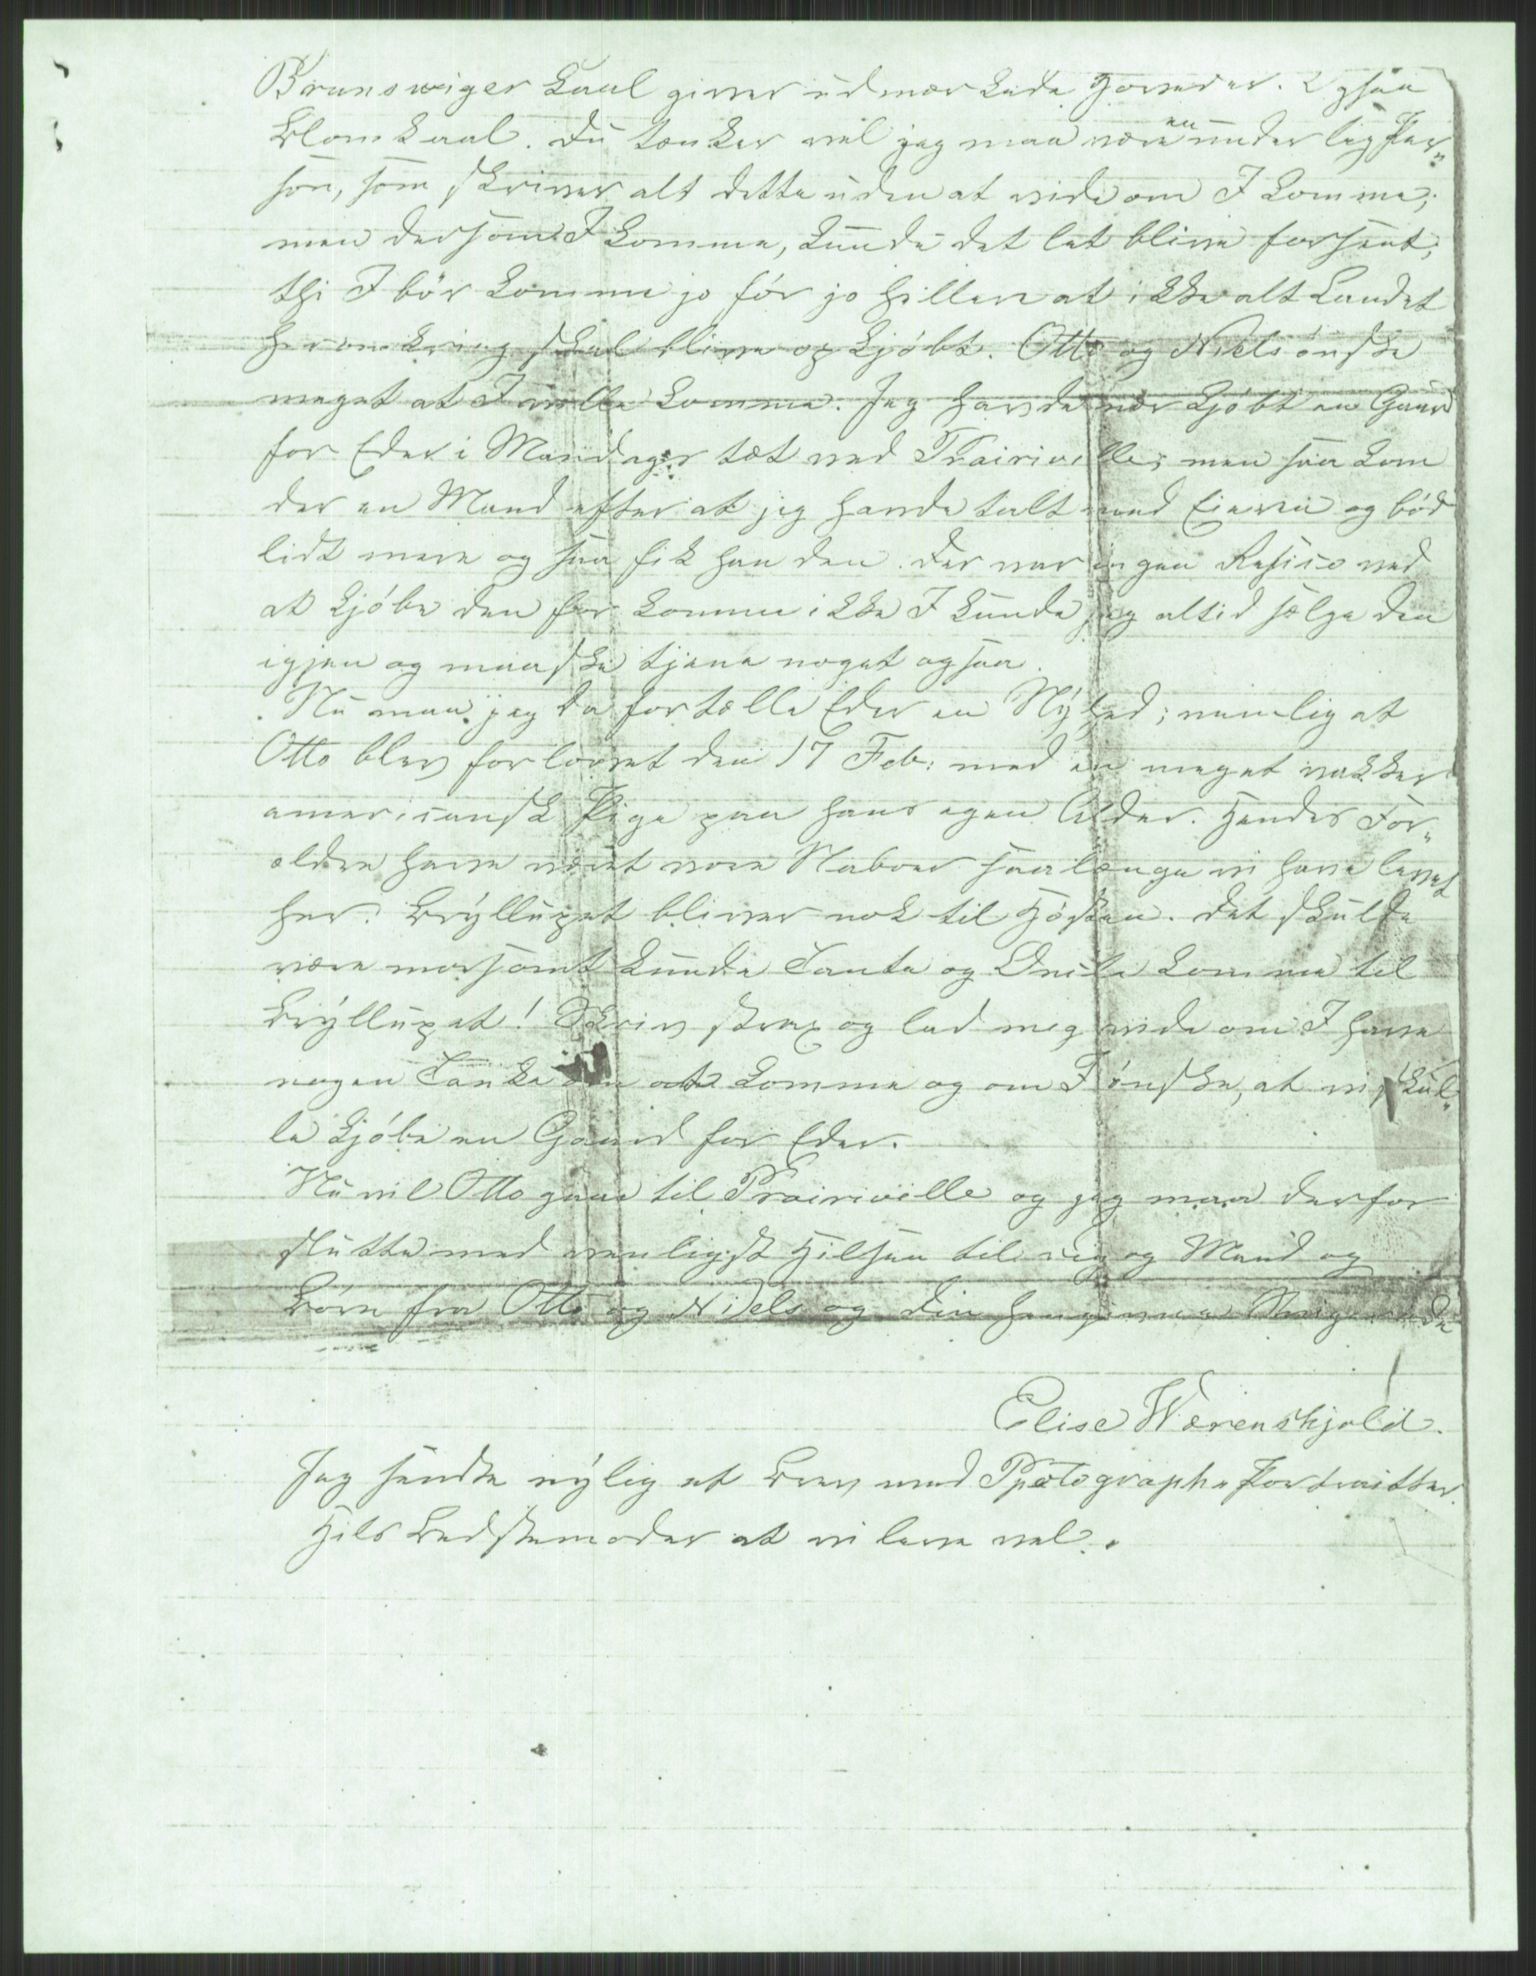 Brunswiger Kaal giver udmærkede Hoveder. Ogsaa
Blomkaal. Du tænker vel jeg maa være en underlig Per„
son, som skriver alt dette uden at vide om I komme;
men dersom I komme, kunde det let blive forsent;
thi I bör komme jo för jo hellere at ikke alt Landet
heromkring skal blive opkjöbt. Otto og Niels önske
meget at I ville komme. Jeg havde nær kjöbt en Gaard
for Eder i Mandags tæt ved Prairieville; men saa kom
der en Mand efter at jeg havde talt med Eieren og böd
lidt mere og saa fik han den. Der var ingen Resico ved
at kjöbe den for komme ikke I kunde jeg altid sælge den
igjen og maaske tjene noget ogsaa.
Nu maa jeg da fortælle Eder en Nyhed; nemlig at
Otto blev forlovet den 17 Feb: med en meget vakker
americansk Pige paa hans egen Alder. Hendes For„
ældre have været vore Naboer saalænge vi have levet
her. Bryllupet bliver nok til Hösten. Det skulde
være morsomt kunde Tante og Onkel komme til
Bryllupet! Skriv strax og lad mig vide om I have
nogen Tanke om at komme og om I önske, at vi skul„
le kjöbe en Gaard for Eder.
Nu vil Otto gaae til Prairieville og jeg maa derfor
slutte med venligst Hilsen til dig og Mand og
Börn fra Otto og Niels og din hengivne Svigerinde
Elise Wærenskjold.
Jeg sendte nylig et Brev med Photograph„Portraitter.
Hils Bedstemoder at vi leve vel.